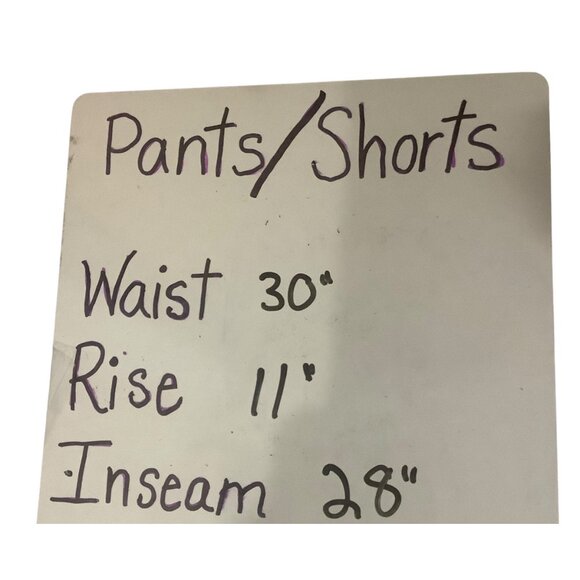 Pants/Shorts
Waist 30"
Rise 11"
Inseam 28"